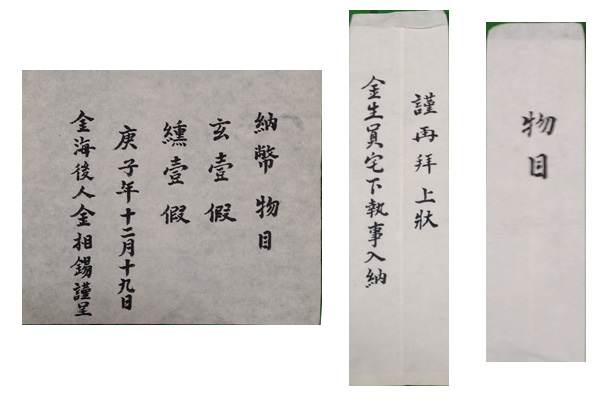 納幣 物目
玄壹假
纁壹假
庚子年十二月十九日
金海後人金相錫謹呈
謹再拜 上狀
金生員宅下執事入納
物目